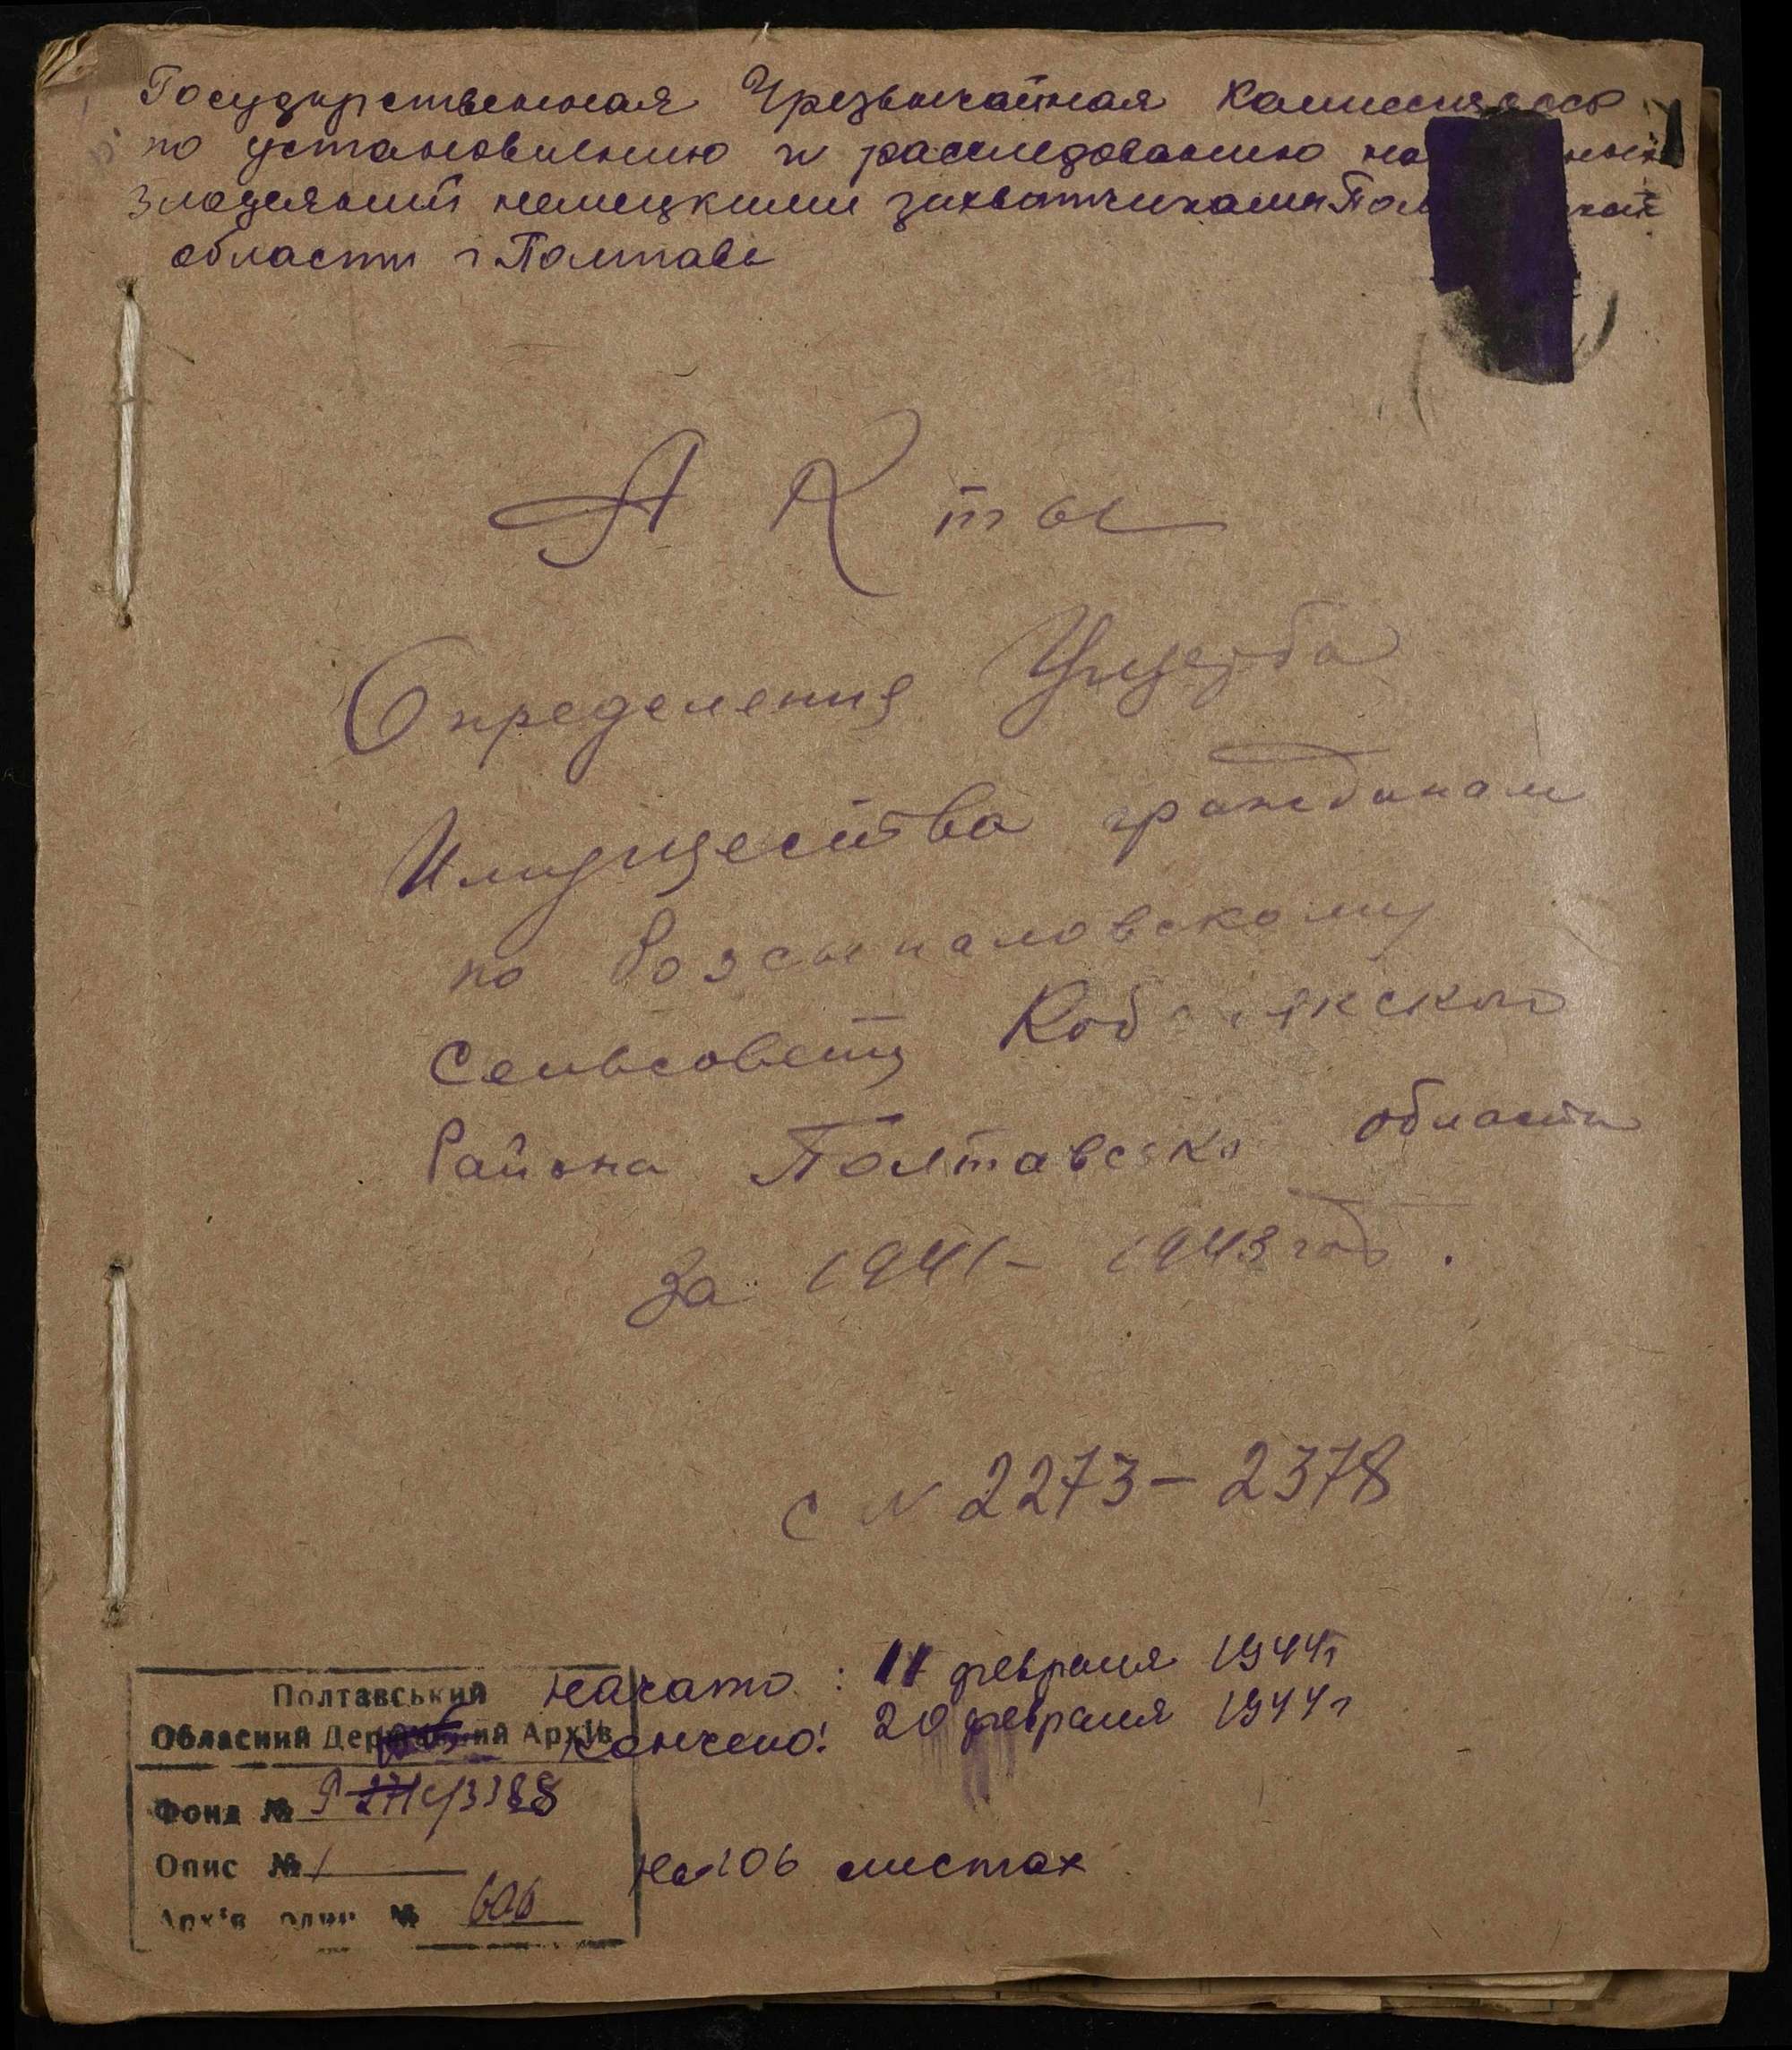 Государственная Чрезвычайная Комиссия СССР
по установлению и расследованию
злодеяний немецкими захватчиками
области г Полтава
Акты
Определения Ущерба
Имущества гражданам
по Розсыпаловскому
Сельсовету
Района Полтавско области
за 1941 - 1943 год.
с N 2273 - 2378
Начато : 11 февраля 1944 г
Кончено: 20 февраля 1944 г
На 106 листах
Полтавський
Обласний Державний Архів
Фонд № Р /3388
Опис № 1
Архів № 606